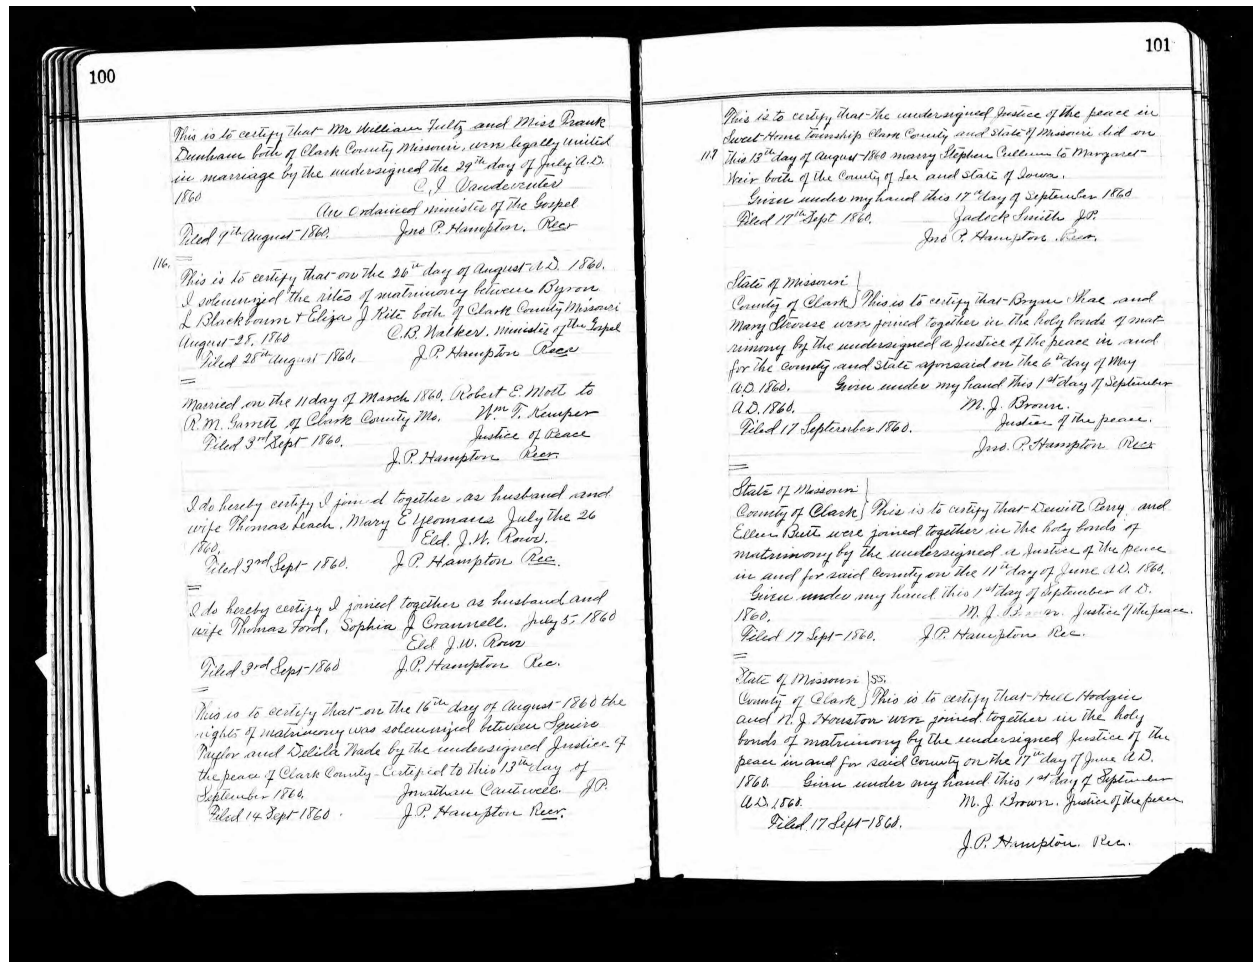 100
This is to certify that Mr William Fultz and Miss Frank
Dunham both of Clark County Missouri, were legally united
in marriage by the undersigned the 29th day of July A.D.
1860
C. J. Vandeventer
An ordained minister of the Gospel
Filed 9th August 1860. Jno P. Hampton. Recr
116.
This is to certify that on the 26th day of August A.D. 1860.
I solemnized the rites of matrimony between Byron
L Blackbourn + Eliza J Kite both of Clark County Missouri
August 28, 1860 C.B. Walker. minister of the Gospel
Filed 28th August 1860. J. P. Hampton Recr
Married on the 11 day of March 1860. Robert E. Mott to
R. M. Garrett of Clark County Mo. Wm T. Kemper
Filed 3rd Sept 1860. Justice of Peace
J. P. Hampton Recr.
I do hereby certify I joined together as husband and
wife Thomas Leach, Mary E Yeomans July the 26
1860. Eld. J. W. Rowe.
Filed 3rd Sept 1860. J. P. Hampton Rec.
I do hereby certify I joined together as husband and
wife Thomas Ford, Sophia J Crannell. July 5, 1860
Eld J. W. Rowe
Filed 3rd Sept 1860 J. P. Hampton Rec.
This is to certify that on the 16th day of August 1860 the
rights of matrimony was solemnized between Squire
Taylor and Delila Wade by the undersigned Justice of
the peace of Clark County. Certified to this 13th day of
September 1860. Jonathan Cantwell J.P.
Filed 14 Sept 1860. J. P. Hampton Recr.
101
This is to certify that the undersigned Justice of the peace in
Sweet Home township Clark County and State of Missouri did on
117 this 13th day of August 1860 marry Stephen Cullum to Margaret
Weir both of the County of Lee and State of Iowa.
Given under my hand this 17th day of September 1860
Filed 17th Sept 1860. Zadock Smith J.P.
Jno P. Hampton Recr.
State of Missouri }
County of Clark } This is to certify that Bryan Shae and
Mary Strouse were joined together in the holy bonds of mat-
rimony by the undersigned a Justice of the peace in and
for the County and State aforesaid on the 6th day of May
A.D. 1860. Given under my hand this 1st day of September
A.D. 1860. M. J. Brown.
Filed 17 September 1860. Justice of the peace.
Jno. P. Hampton Recr
State of Missouri }
County of Clark } This is to certify that Dewitt Perry and
Ellen Butt were joined together in the holy bonds of
matrimony by the undersigned a Justice of the peace
in and for said County on the 11th day of June A.D. 1860.
Given under my hand this 1st day of September A.D.
1860. M. J. Brown Justice of the peace.
Filed 17 Sept 1860. J. P. Hampton Rec.
State of Missouri } ss.
County of Clark } This is to certify that Hull Hodgin
and N. J. Houston were joined together in the holy
bonds of matrimony by the undersigned Justice of the
peace in and for said County on the 17th day of June A.D.
1860. Given under my hand this 1st day of September
A.D. 1860. M. J. Brown. Justice of the peace
Filed 17 Sept 1860.
J. P. Hampton. Rec.